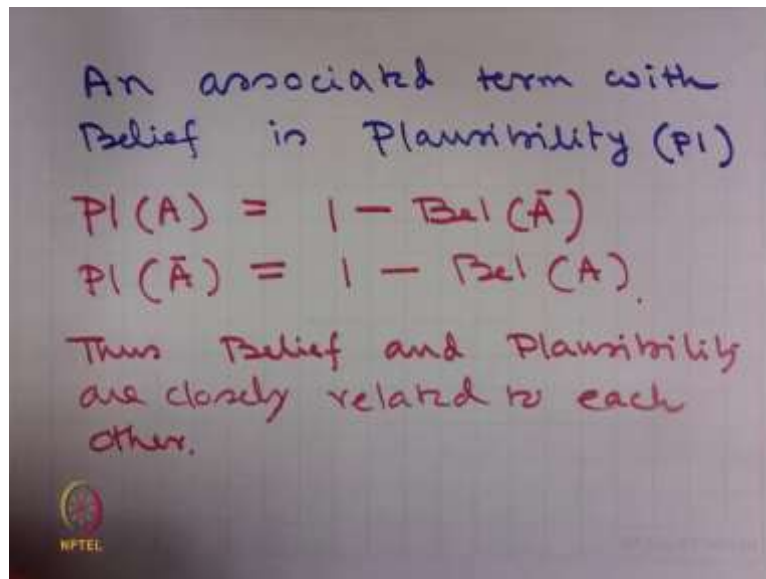 An associated term with
Belief is Plausibility (Pl)
Pl (A) = 1 - Bel (Ā)
Pl (Ā) = 1 - Bel (A).
Thus Belief and Plausibility
are closely related to each
other.
NPTEL